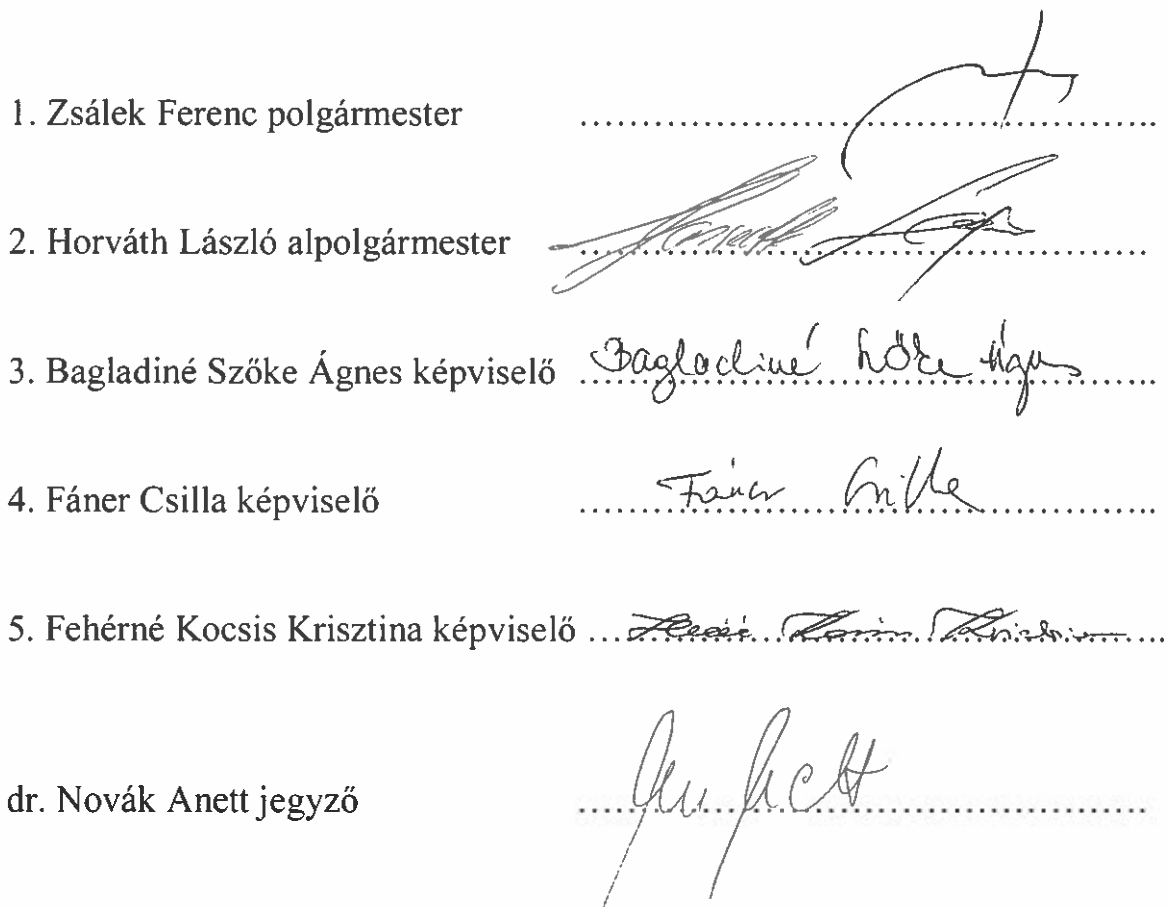 1. Zsálek Ferenc polgármester ........................................................
2. Horváth László alpolgármester ........................................................
3. Bagladiné Szőke Ágnes képviselő Bagladiné Szőke Ágnes
4. Fáner Csilla képviselő Fáner Csilla
5. Fehérné Kocsis Krisztina képviselő ........................................................
dr. Novák Anett jegyző ........................................................